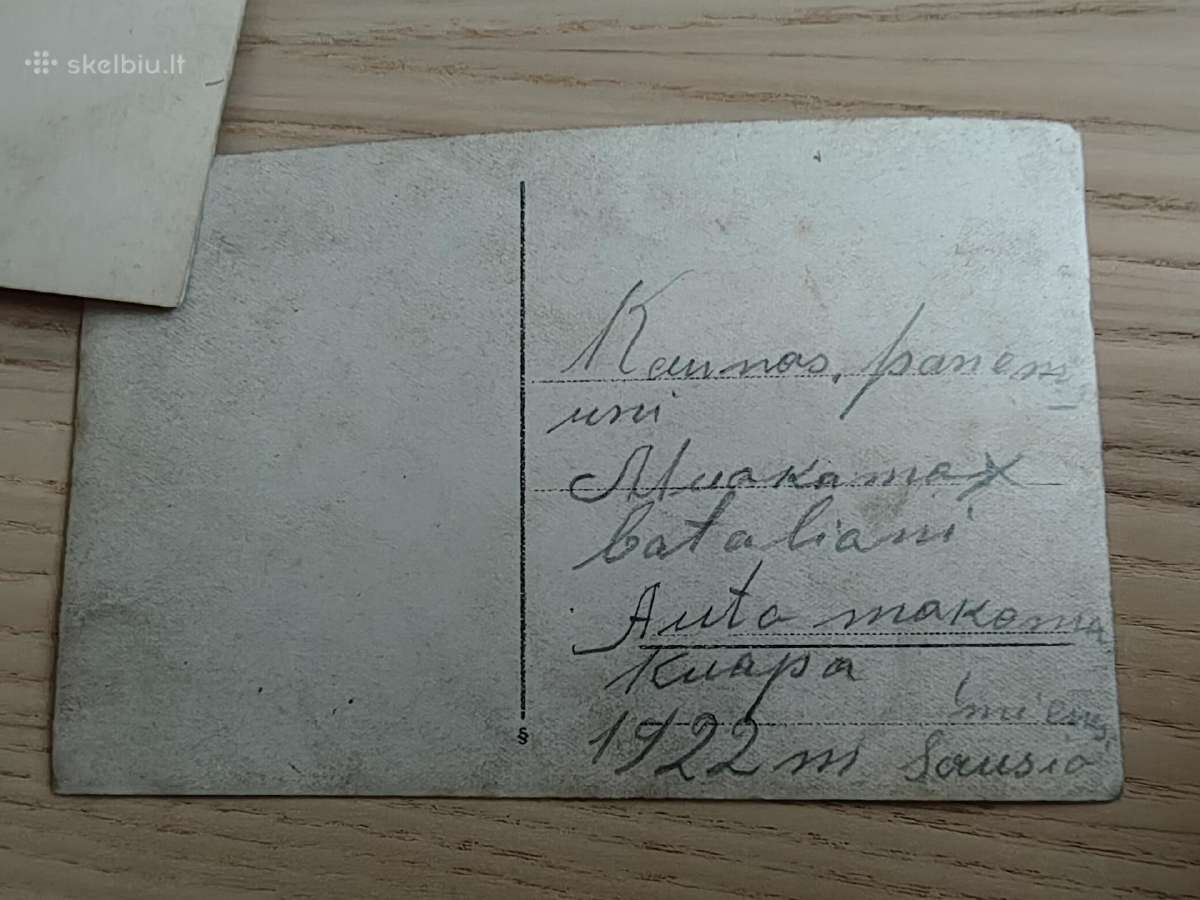 skelbiu.lt
Kaunas, panem
uni
Muakama
bataliani
Auto makoma
Kuapa
mieną
1922 m Sausio
§